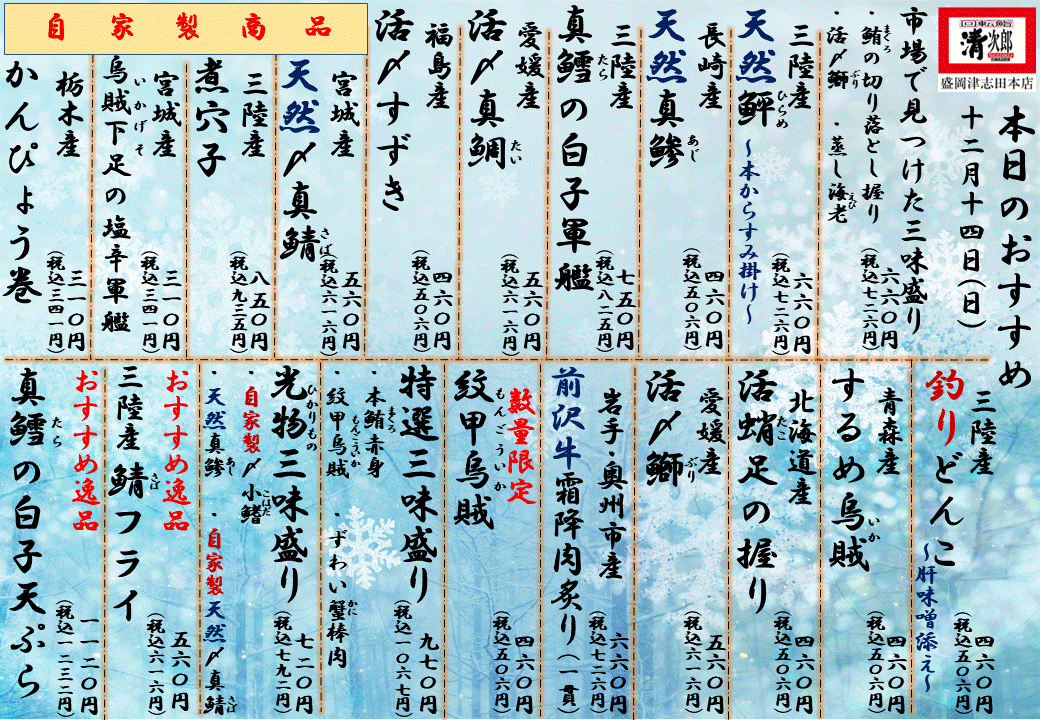 回転鮨
清次郎
盛岡津志田本店
本日のおすすめ
十二月十四日(日)
市場で見つけた三味盛り
・鮪の切り落とし握り
まぐろ
・活〆鰤
ぶり
・蒸し海老
えび
六六〇円
(税込七二六円)
三陸産
天然鮃
ひらめ
~本からすみ掛け~
六六〇円
(税込七二六円)
長崎産
天然真鯵
あじ
四六〇円
(税込五〇六円)
三陸産
真鱈の白子軍艦
たら
七五〇円
(税込八二五円)
愛媛産
活〆真鯛
たい
五六〇円
(税込六一六円)
福島産
活〆すずき
四六〇円
(税込五〇六円)
自家製商品
宮城産
天然〆真鯖
さば
五六〇円
(税込六一六円)
三陸産
煮穴子
八五〇円
(税込九三五円)
宮城産
烏賊下足の塩辛軍艦
いかげそ
三一〇円
(税込三四一円)
栃木産
かんぴょう巻
三一〇円
(税込三四一円)
三陸産
釣りどんこ
~肝味噌添え~
四六〇円
(税込五〇六円)
青森産
するめ烏賊
いか
四六〇円
(税込五〇六円)
北海道産
活蛸足の握り
たこ
四六〇円
(税込五〇六円)
愛媛産
活〆鰤
ぶり
五六〇円
(税込六一六円)
岩手・奥州市産
前沢牛霜降肉炙り(一貫)
六六〇円
(税込七二六円)
数量限定
紋甲烏賊
もんごういか
四六〇円
(税込五〇六円)
特選三味盛り
・本鮪赤身
まぐろ
・紋甲烏賊
もんごういか
・ずわい蟹棒肉
かに
九七〇円
(税込一〇六七円)
光物三味盛り
ひかりもの
・自家製〆小鰭
こはだ
・天然真鯵
あじ
・自家製天然〆真鯖
さば
七二〇円
(税込七九二円)
おすすめ逸品
三陸産鯖フライ
さば
五六〇円
(税込六一六円)
おすすめ逸品
真鱈の白子天ぷら
たら
一一二〇円
(税込一二三二円)